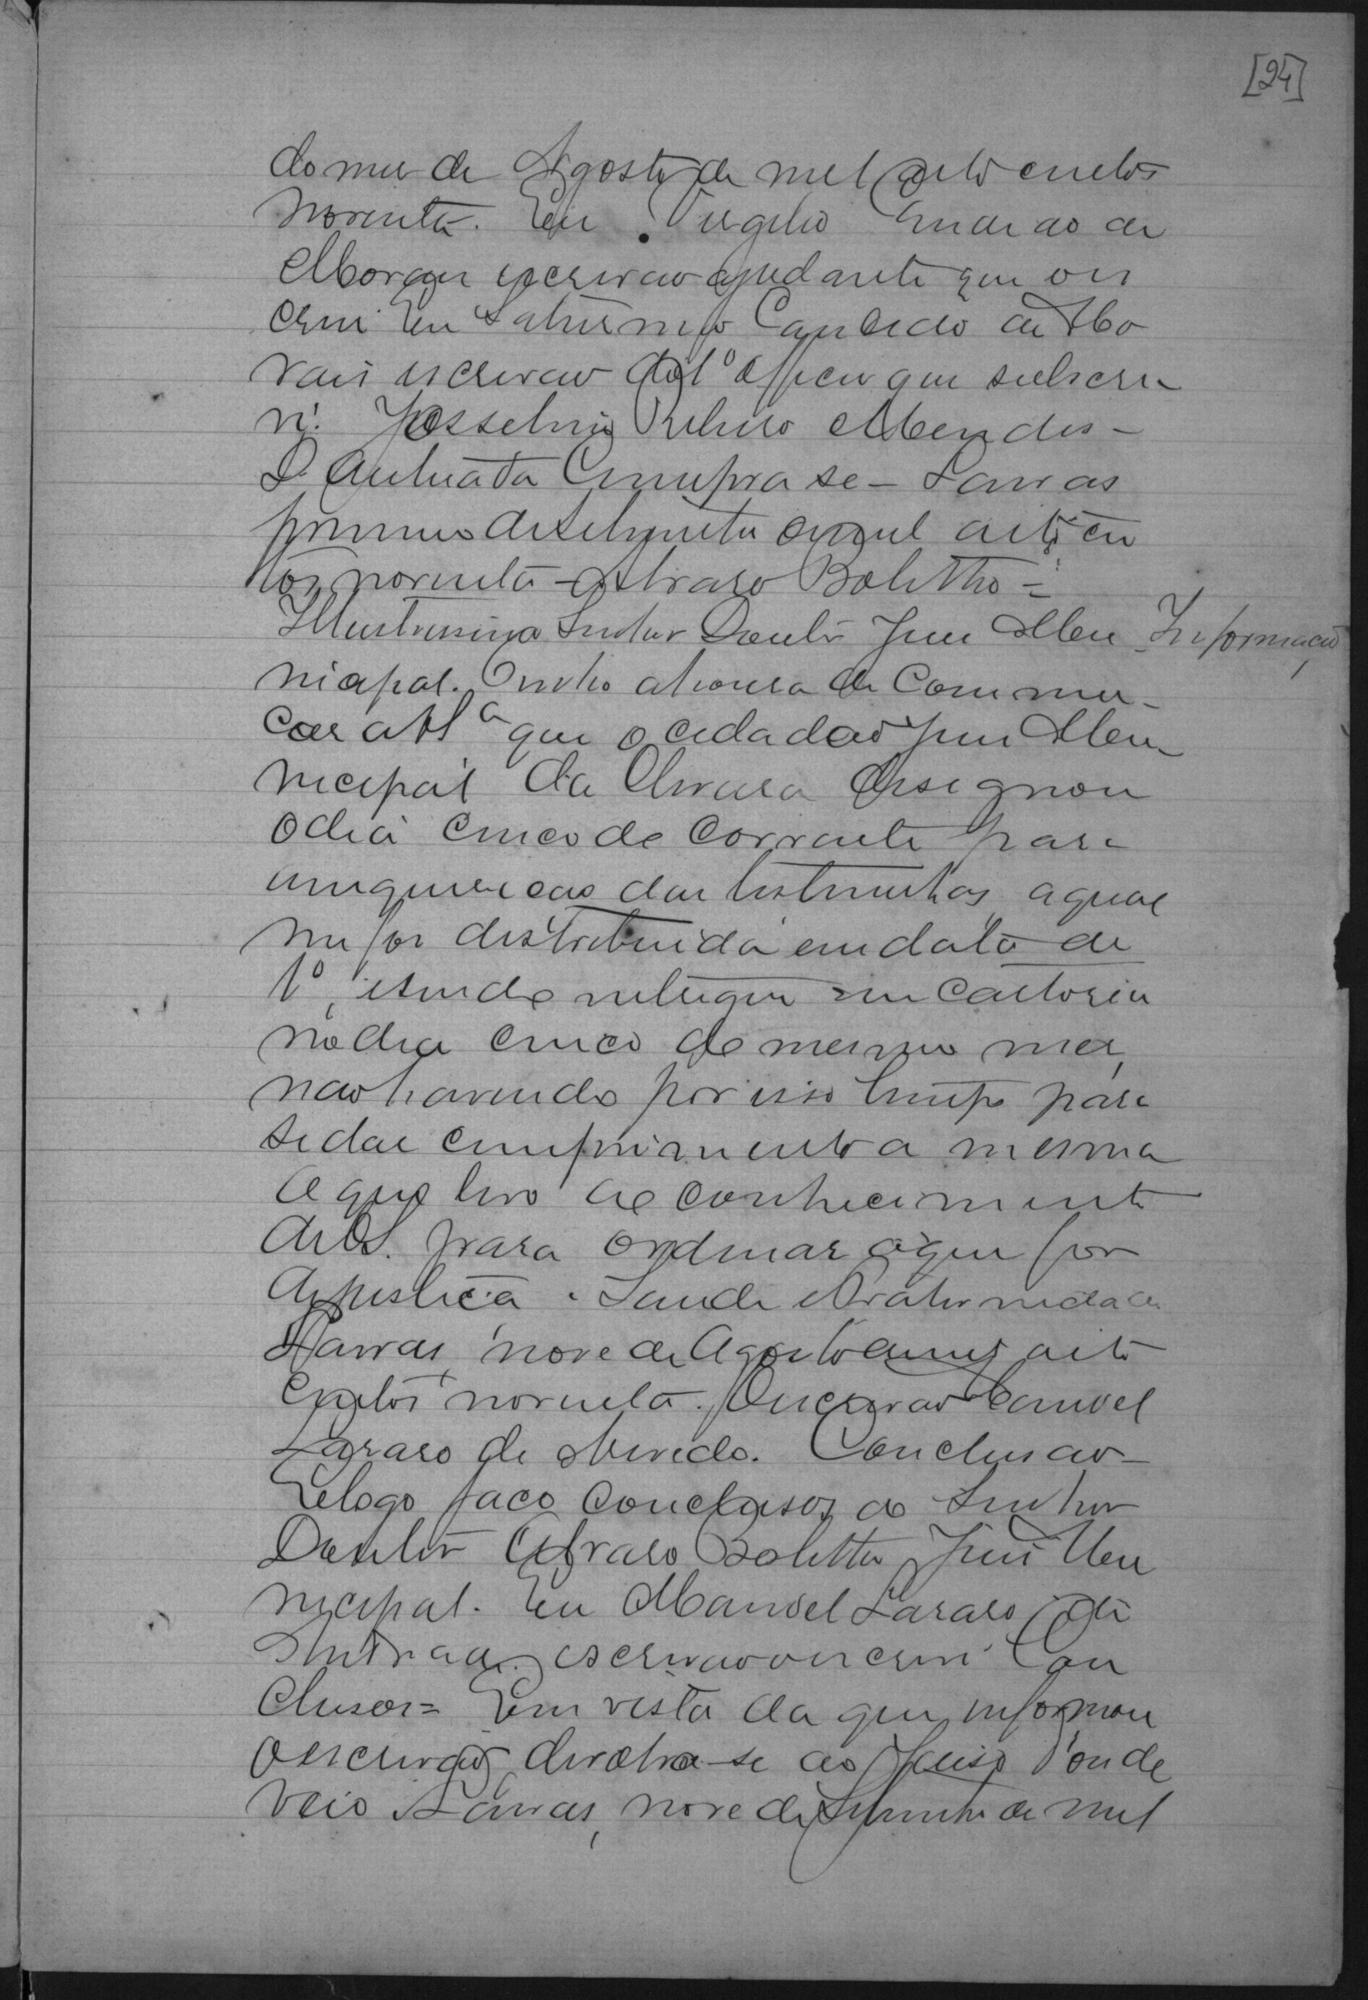 [24]
do mez de Agosto de mil oito centos
noventa. Eu Virgilio
de Moraes escrivao ajudante que es
crevi Eu Saturnino Candido de Mo
raes escrivao do 1º Officio que subscre
vi. Josselino Ribeiro Mendes -
D. Autuada Cumpra se - Lavras
primeiro de Setembro de mil oito cen
tos noventa - Alvaro Botelho =
Illustrissimo Senhor Doutor Juiz Mu Informação
nicipal. Tenho a honra de Commu
car a VSª que o cidadão Juiz Mu
nicipal da Oliveira designou
o dia cinco do corrente para
inquirição das testemunhas a qual
me foi distribuida em data de
1º, sendo entregue em Cartorio
no dia cinco do mesmo mez,
não havendo por isso tempo para
se dar cumprimento a mesma
o que levo ao conhecimento
de VS. para ordenar o que for
de justiça. Saude e Fraternidade
Lavras, nove de Agosto de mil oito
centos noventa. O escrivao Manoel
Lazaro de Azevedo. Conclusao -
E logo faço conclusos ao Senhor
Doutor Alvaro Botelho Juiz Mu
nicipal. Eu Manoel Lazaro de
escrivao o escrevi Con
clusos = Em vista da que informou
o escrivão, devolva-se ao Juiso d'onde
veio Lavras, nove de Setembro de mil